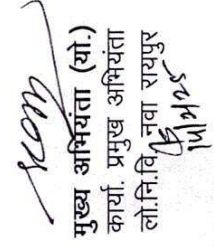 मुख्य अभियंता (यो.)
कार्या. प्रमुख अभियंता
लो.नि.वि. नवा रायपुर